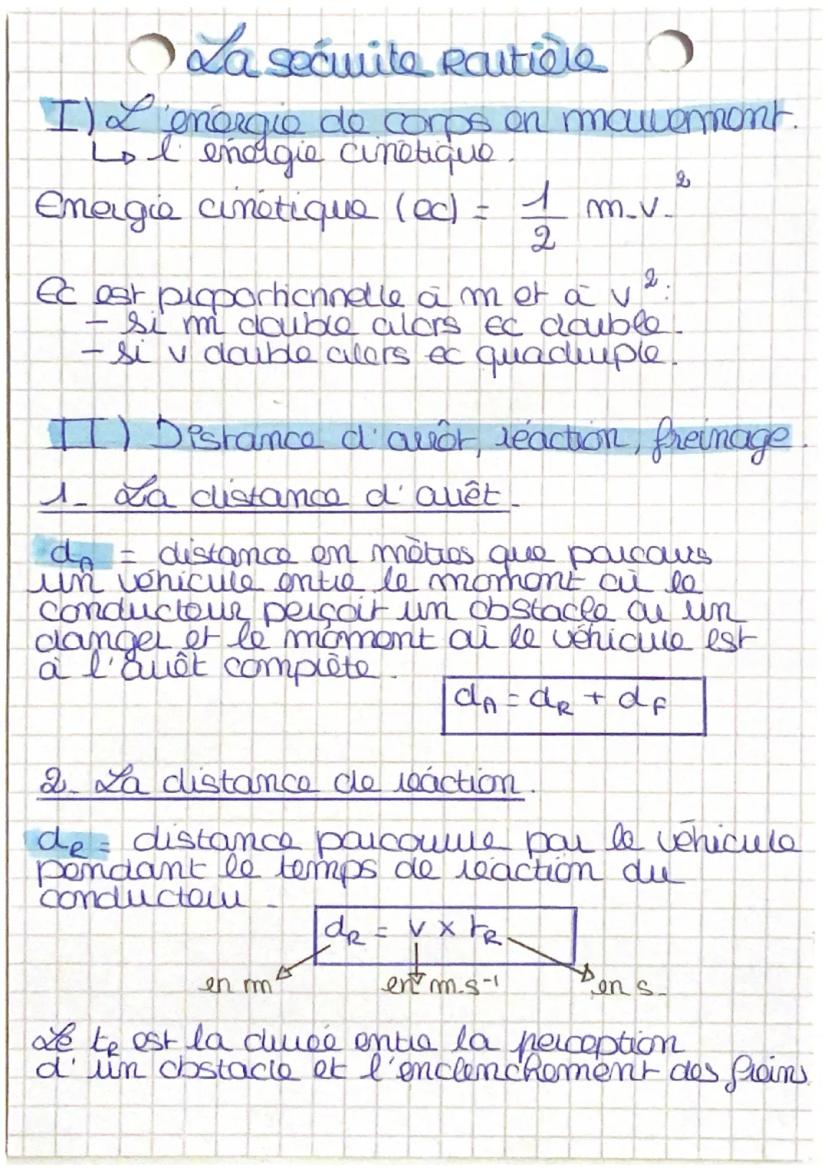 La sécurité routière
I) L'énergie de corps en mouvement.
↳ l'énergie cinétique.
Energie cinétique (ec) = 1/2 m.v.²
Ec est proportionnelle à m et à v²:
- si m double alors ec double.
- si v double alors ec quadruple.
II) Distance d'arrêt, réaction, freinage.
1- La distance d'arrêt.
dA = distance en mètres que parcours
un véhicule entre le moment où le
conducteur perçoit un obstacle ou un
danger et le moment où le véhicule est
à l'arrêt complète.
dA = dR + dF
2- La distance de réaction.
dR = distance parcourue par le véhicule
pendant le temps de réaction du
conducteur.
dR = v × tR
en m en m.s⁻¹ en s.
Le tR est la durée entre la perception
d'un obstacle et l'enclenchement des freins